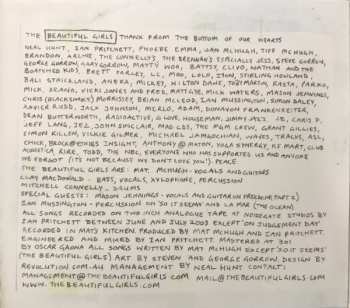 THE BEAUTIFUL GIRLS THANK FROM THE BOTTOM OF OUR HEARTS
NEAL HUNT, IAN PRITCHETT, PHOEBE EMMA, JAN MCHUGH, TIFF MCHUGH,
BRANDON, ARLNE, THE CONNELLYS, THE BRENNAN'S ESPECIALLY JESS, STEVE GORROW,
GEORGE GORROW, GARY GORROW, MATTY WOH, BATTSY, CLIVO, NATHAN AND THE
BOATSHED KIDS, BRETT FARLEY, LL, MOO, LOLO, IZON, STIRLING HOWLAND,
BALI STRICKLAND, ANERA, MICKEY, HILTON DAWE, TOBY MARTIN, RASTA, PARKO,
MICK, DEANO, VICKI JONES AND FRED, MATTGYE, MICK WATERS, MAXON JENNINGS,
CHRIS (BLACKSMOKE) MORRISSEY, BRIAN MCLEOD, IAN MUSSINGTON, SIMON DALEY,
XAVIER RUDD, JACK JOHNSON, MERLO, ADAM, DONAVON FRANKENREITER,
DEAN BUTTERWORTH, RADIOACTIVE, G LOVE, HOUSEMAN, JIMMY JAZZ, JB, CHRIS P,
JEFF LANG, JEB, JOHN SINCLAIR, MAD CDS, THE MGM CREW, GRANT GILLIES,
SIMON KILLEN, VICKIE GILMER, MICHAEL JAMGOCHIAN, WAVES, TRACKS, ASL,
CHICK, BROOK@TONES INSIGHT, ANTHONY@MOXON, YOGA SYNERGY, KS MART, CLUB
AUGUSTA, KIRK, TODD, THE NBE, EVERYONE WHO HAS SUPPORTED US AND ANYONE
WE FORGOT (IT'S NOT BECAUSE WE DON'T LOVE YOU!) PEACE
THE BEAUTIFUL GIRLS ARE: MAT. MCHUGH - VOCALS AND GUITARS
CLAY MACDONALD - BASS, VOCALS, XYLOPHONE, PERCUSSION
MITCHELL CONNELLY - DRUMS
SPECIAL GUESTS: MAXON JENNINGS - VOCALS AND GUITAR ON FREEDOM (PART 2)
IAN MUSSINGTON - PERCUSSION ON 'SO IT SEEMS' AND LA MAR (THE OCEAN)
ALL SONGS RECORDED ON TWO INCH ANALOGUE TAPE AT NODERATE STUDIOS BY
IAN PRITCHETT BETWEEN JUNE AND JULY 2003 EXCEPT ON JUDGEMENT DAY
RECORDED IN MATS KITCHEN. PRODUCED BY MAT MCHUGH AND IAN PRITCHETT
ENGINEERED AND MIXED BY IAN PRITCHETT. MASTERED AT 301
BY OSCAR GAONA ALL SONGS WRITTEN BY MAT MCHUGH EXCEPT 'SO IT SEEMS'
(THE BEAUTIFUL GIRLS) ART BY STEVEN AND GEORGE GORROW. DESIGN BY
REVOLUTION.COM.AU MANAGEMENT BY NEAL HUNT CONTACT:
MANAGEMENT@THEBEAUTIFULGIRLS.COM MAIL@THEBEAUTIFULGIRLS.COM
WWW.THEBEAUTIFULGIRLS.COM